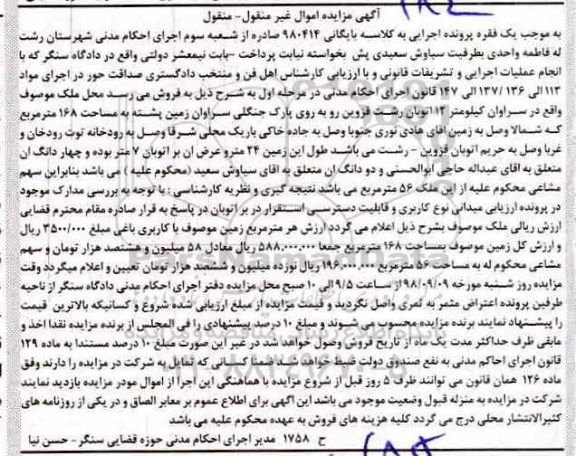 آگهی مزایده اموال غیر منقول- منقول
به موجب یک فقره پرونده اجرایی به کلاسه بایگانی ۹۸۰۴۱۴ صادره از شعبه سوم اجرای احکام مدنی شهرستان رشت
له فاطمه واحدی بطرفیت سیاوش سعیدی پش بخواسته نیابت پرداخت -بابت نیمعشر دولتی واقع در دادگاه سنگر که با
انجام عملیات اجرایی و تشریفات قانونی و با ارزیابی کارشناس اهل فن و منتخب دادگستری صداقت حور در اجرای مواد
۱۱۳ الی ۱۳۶ /۱۳۷ الی ۱۴۷ قانون اجرای احکام مدنی در مرحله اول به شرح ذیل به فروش می رسد محل ملک موصوف
واقع در سراوان کیلومتر ۱۳ اتوبان رشت قزوین رو به روی پارک جنگلی سراوان زمین پشته به مساحت ۱۶۸ مترمربع
که شمالا وصل به زمین آقای هادی نوری جنوبا وصل به جاده خاکی باریک محلی شرقا وصل به رودخانه توت رودخان و
غربا وصل به حریم اتوبان قزوین - رشت می باشد طول این زمین ۲۴ مترو عرض ان بر اتوبان ۷ متر بوده و چهار دانگ ان
متعلق به اقای عبداله حاجی ابوالحسنی و دو دانگ ان متعلق به اقای سیاوش سعید (محکوم علیه ) می باشد بنابراین سهم
مشاعی محکوم علیه از این ملک ۵۶ مترمربع می باشد نتیجه گیری و نظریه کارشناسی : با توجه به بررسی مدارک موجود
در پرونده ارزیابی میدانی نوع کاربری و قابلیت دسترسی استقرار در بر اتوبان در پاسخ به قرار صادره مقام محترم قضایی
ارزش ریالی ملک موصوف بشرح ذیل اعلام می گردد ارزش هر مترمربع زمین موصوف با کاربری باغی مبلغ ۳۵۰۰/۰۰۰ ریال
و ارزش کل زمین موصوف بمساحت ۱۶۸ مترمربع جمعا ۵۸۸.۰۰۰.۰۰۰ ریال معادل ۵۸ میلیون و هشتصد هزار تومان و سهم
مشاعی محکوم له به مساحت ۵۶ مترمربع ۱۹۶.۰۰۰.۰۰۰ ریال نوزده میلیون و ششصد هزار تومان تعیین و اعلام میگردد وقت
مزایده روز شنبه مورخه ۹۸/۰۹/۰۹ از ساعت ۹/۵ الی ۱۰ صبح محل مزایده دفتر اجرای احکام مدنی دادگاه سنگر از ناحیه
طرفین پرونده اعتراض مثمر به ثمری واصل نگردید و قیمت مزایده از مبلغ ارزیابی شده شروع و کسانیکه بالاترین قیمت
را پیشنهاد نمایند برنده مزایده محسوب می شوند و مبلغ ۱۰ درصد پیشنهادی را فی المجلس از برنده مزایده نقدا اخذ و
مابقی ظرف حداکثر مدت یک ماه از تاریخ فروش وصول خواهد شد در غیر این صورت مبلغ ۱۰ درصد مستندا به ماده ۱۲۹
قانون اجرای احاکم مدنی به نفع صندوق دولت ضبط خواهد شد ضمنا کسانی که تمایل به شرکت در مزایده را دارند وفق
ماده ۱۲۶ همان قانون می توانند ظرف ۵ روز قبل از شروع مزایده با هماهنگی این اجرا از اموال مودر مزایده بازدید نمایند
شرکت در مزایده به منزله قبول وضعیت موجود می باشد این اگهی برای اطلاع عموم بر معابر الصاق و در یکی از روزنامه های
کثیرالانتشار محلی درج می گردد کلیه هزینه های فروش به عهده محکوم علیه می باشد
ح ۱۷۵۸ مدیر اجرای احکام مدنی حوزه قضایی سنگر- حسن نیا